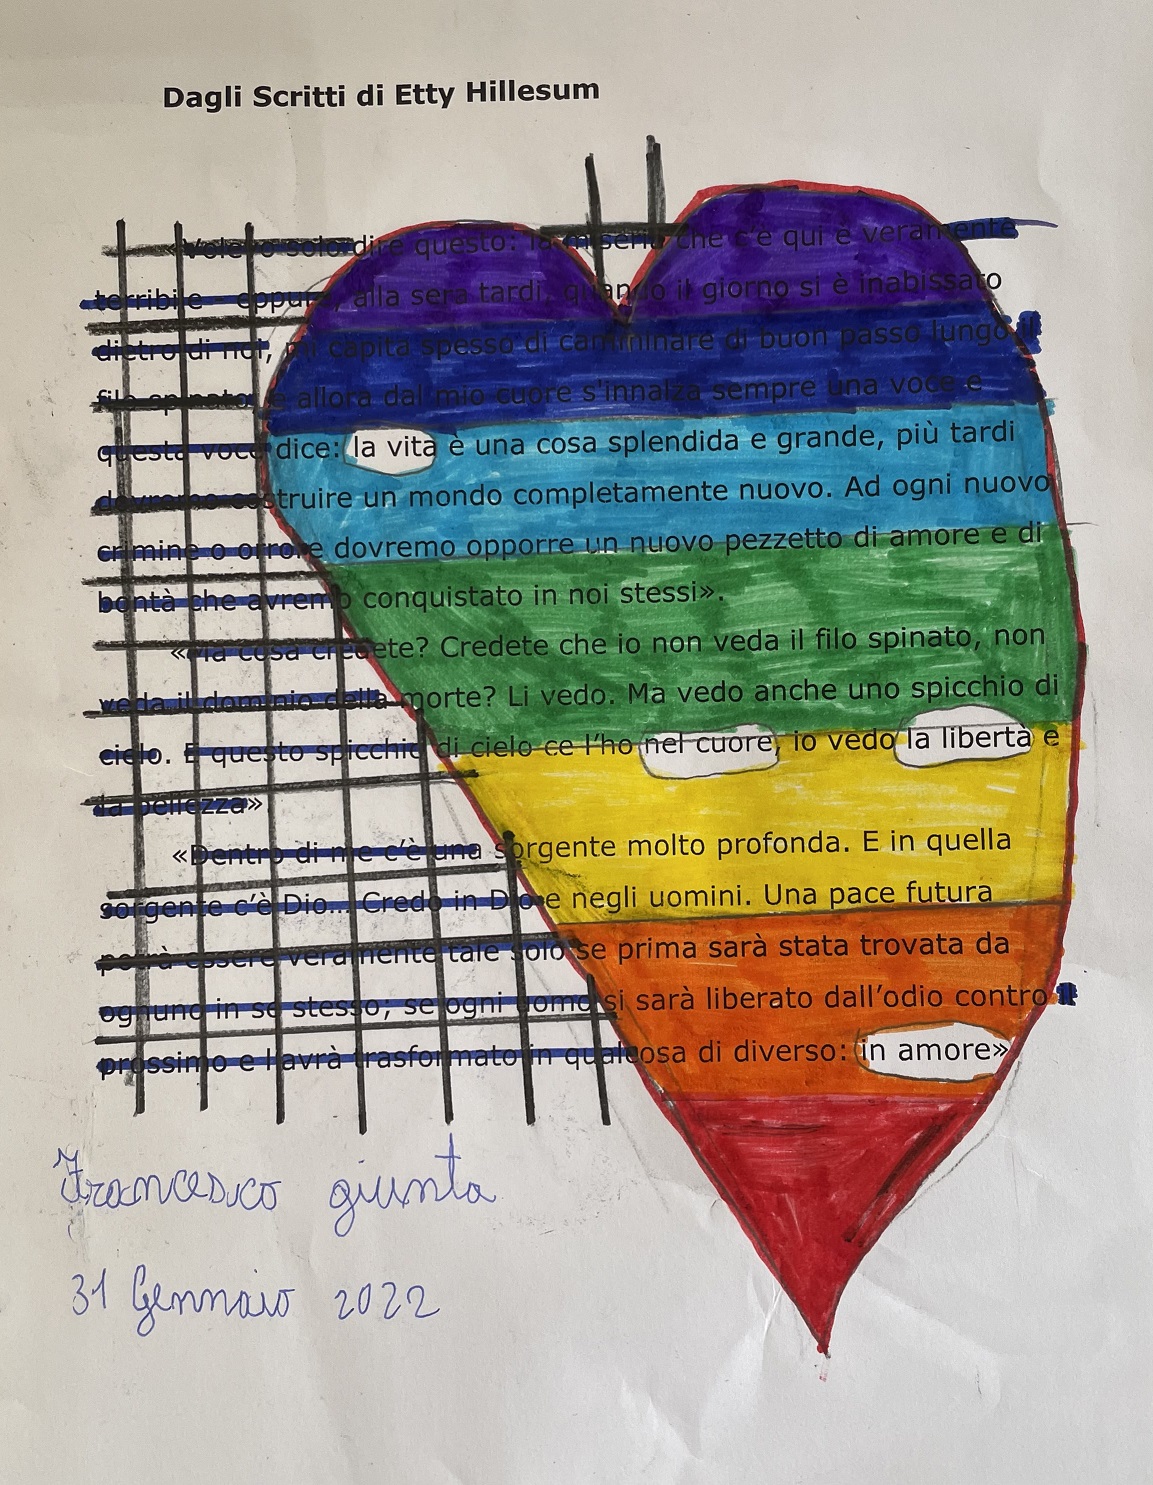 Dagli Scritti di Etty Hillesum
«Volevo solo dire questo: la miseria che c'è qui è veramente
terribile - eppure, alla sera tardi, quando il giorno si è inabissato
dietro di noi, mi capita spesso di camminare di buon passo lungo il
filo spinato, e allora dal mio cuore s'innalza sempre una voce e
questa voce dice: la vita è una cosa splendida e grande, più tardi
dovremo costruire un mondo completamente nuovo. Ad ogni nuovo
crimine o orrore dovremo opporre un nuovo pezzetto di amore e di
bontà che avremo conquistato in noi stessi».
«Ma cosa credete? Credete che io non veda il filo spinato, non
veda il dominio della morte? Li vedo. Ma vedo anche uno spicchio di
cielo. E questo spicchio di cielo ce l'ho nel cuore, io vedo la libertà e
la bellezza»
«Dentro di me c'è una sorgente molto profonda. E in quella
sorgente c'è Dio... Credo in Dio e negli uomini. Una pace futura
potrà essere veramente tale solo se prima sarà stata trovata da
ognuno in se stesso; se ogni uomo si sarà liberato dall'odio contro il
prossimo e l'avrà trasformato in qualcosa di diverso: in amore»
Francesco giunta
31 Gennaio 2022